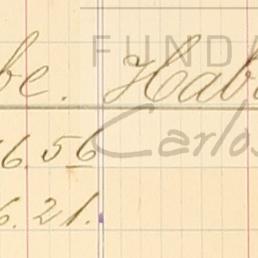 FUNDA
be. Hab
Carlos
6.56
6.21.